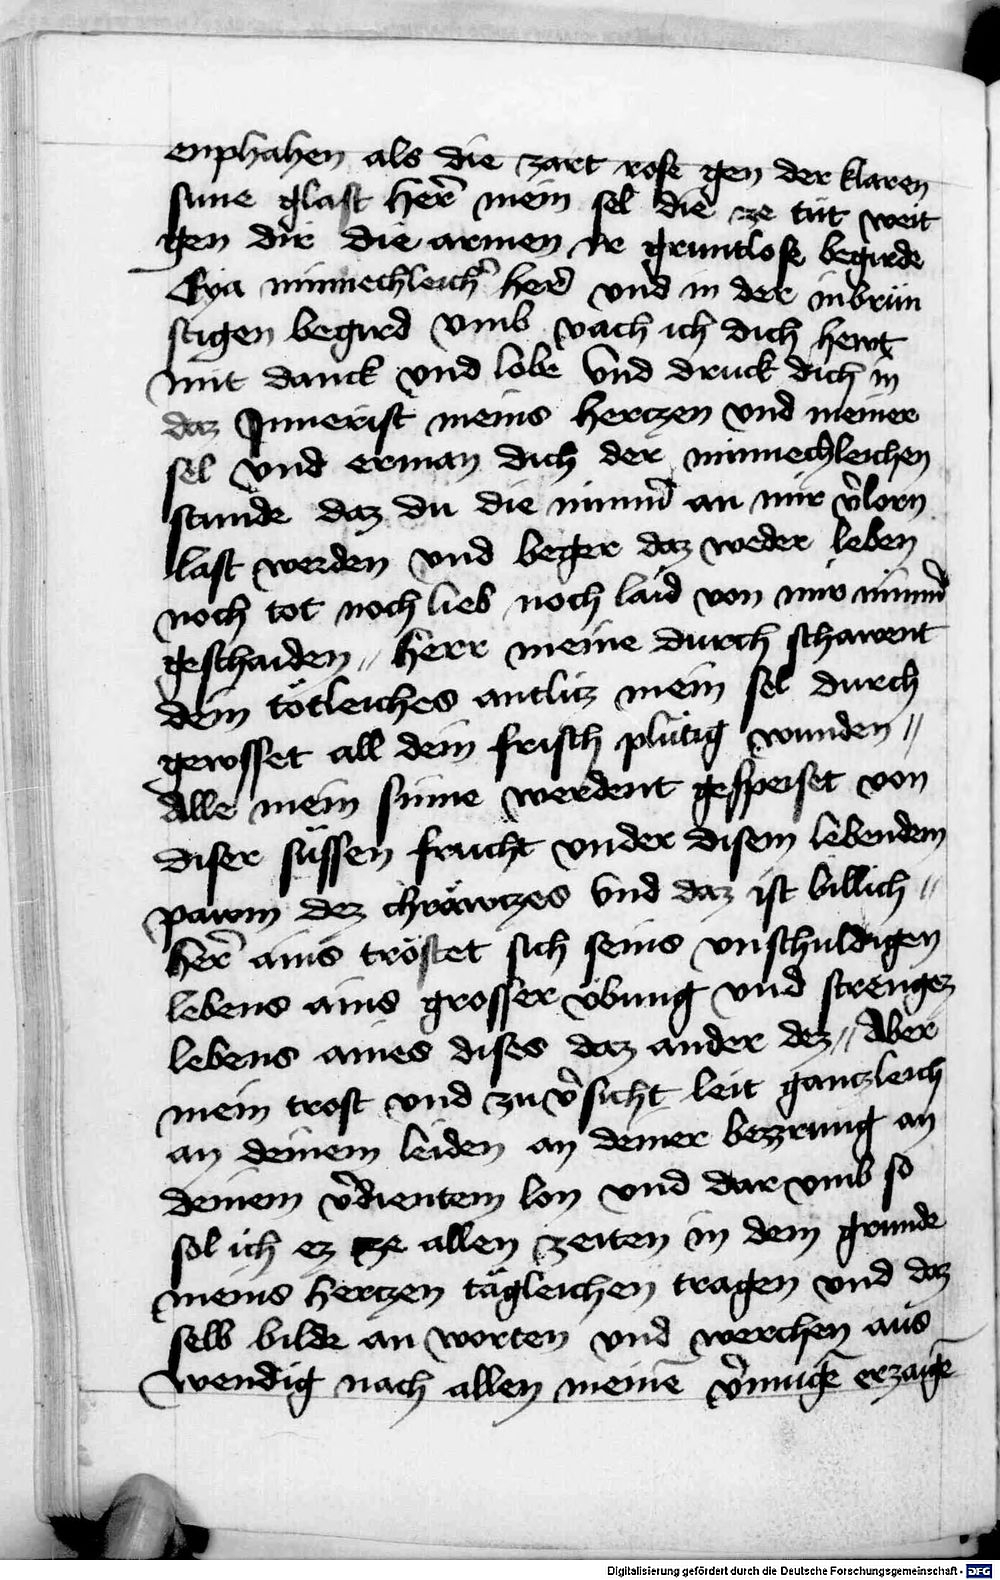 enphahen als die zart rose gen der klaren
sune glast her̄ mein sel die ze tut weit
gen dir die armen ir gruntlose begirde
Eya minnechleich͛ her̄ vnd in der inbrün
stigen begird vmb vach ich dich hewt
mit danck vnd lobe vnd druck dich in
daz Jnnerist meins hertzen vnd meiner
sel vnd erman dich der minnechleichen
stunde daz du die nimm͛ an mir v͛lorn
last werden vnd beger daz weder leben
noch tot noch lieb noch laid von mir nimm͛
geschaiden // herr meine durch schawent
dein tötleiches antlitz mein sel durch
gewsset all dein frisch plütig wunden //
Alle mein sinne werdent gespeiset von
diser süssen frucht vnder disem lebendem
pawm dez chräwtzes vnd daz ist billich //
her̄ ains tröstet sich seins vnschuldigen
lebens ains grosser vbung vnd strengez
lebens aines dises daz ander dez // Aber
mein trost vnd zuv͛sicht leit gantzleich
an deinem leiden an deiner bezzrung an
deinem v͛dientem lon vnd dar vmb so
sol ich ez ze allen zeiten in dem grunde
meins hertzen tägleichen tragen vnd daz
selb bilde an worten vnd werchen aus
wendig nach allen meinē v͛mügē erzaigē
Digitalisierung gefördert durch die Deutsche Forschungsgemeinschaft - DFG